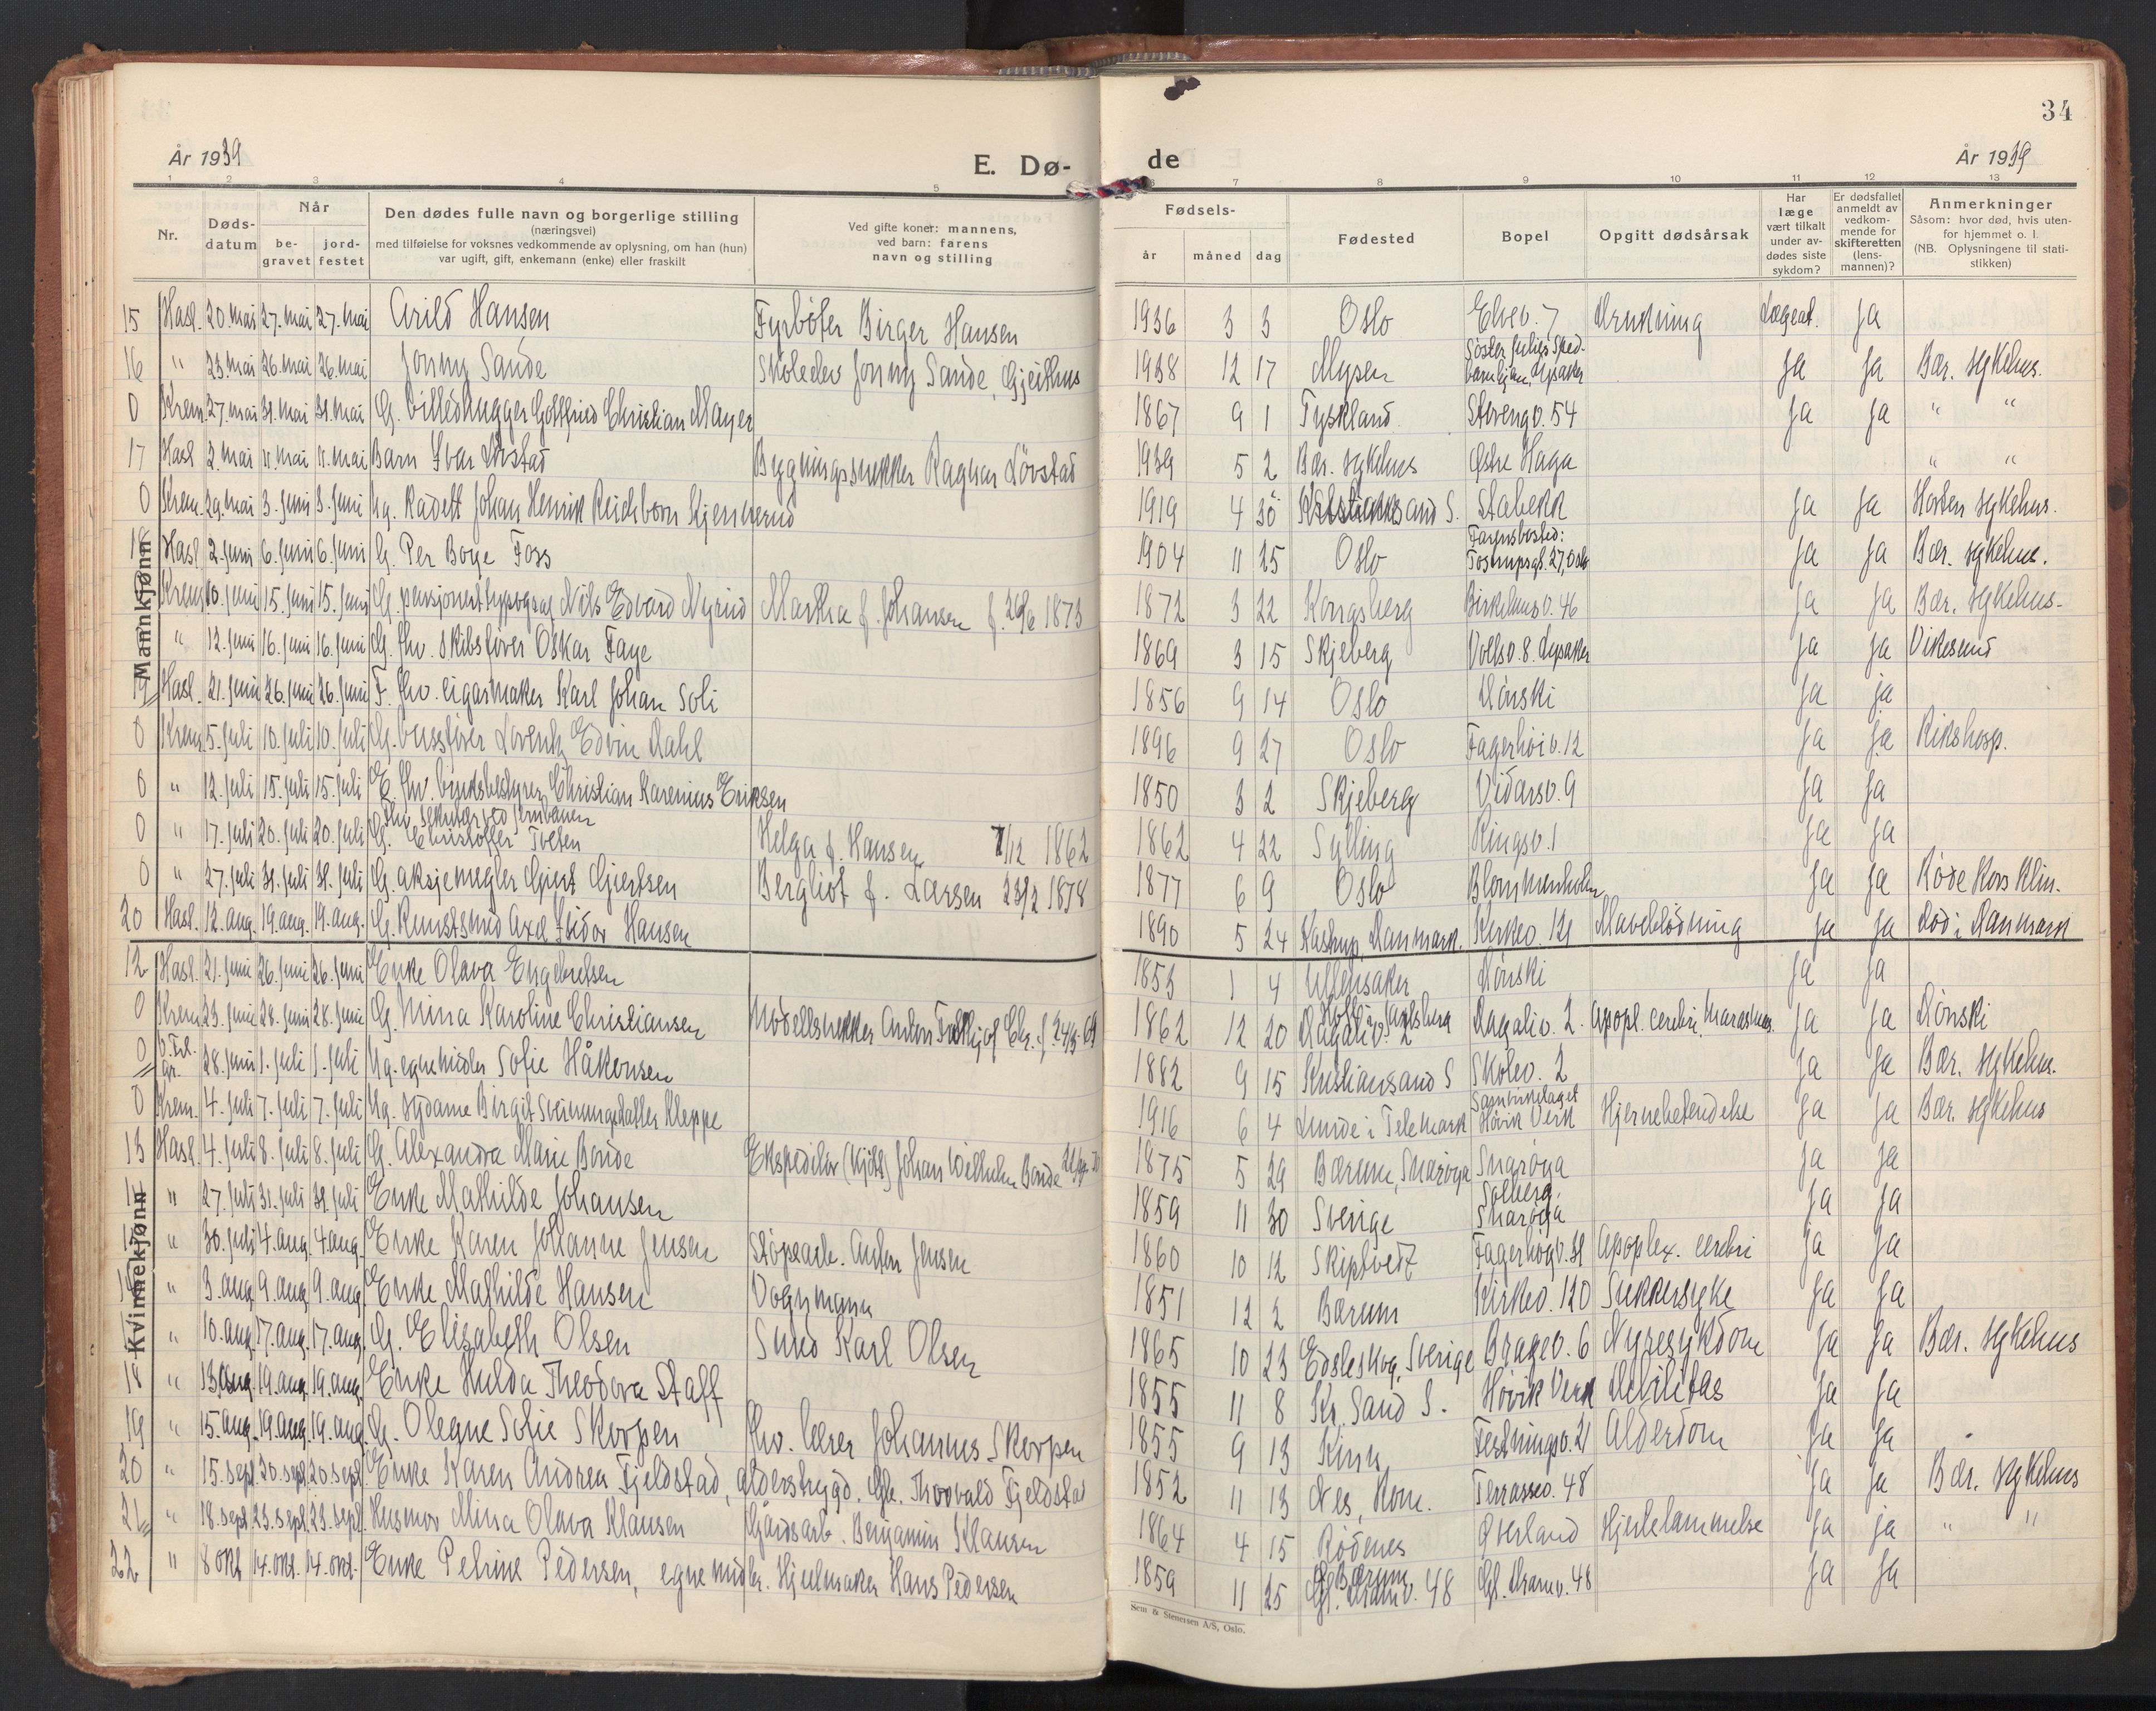 34
År 1939
E. Dø-
de
År 1939
1 2 3 4 5 6 7 8 9 10 11 12 13
Nr.
Døds-
datum
Når
be-
gravet
jord-
festet
Den dødes fulle navn og borgerlige stilling
(næringsvei)
med tilføielse for voksnes vedkommende av oplysning, om han (hun)
var ugift, gift, enkemann (enke) eller fraskilt
Ved gifte koner: mannens,
ved barn: farens
navn og stilling
Fødsels-
år måned dag
Fødested
Bopel
Opgitt dødsårsak
Har
læge
vært tilkalt
under av-
dødes siste
sykdom?
Er dødsfallet
anmeldt av
vedkom-
mende for
skifteretten
(lens-
mannen)?
Anmerkninger
Såsom: hvor død, hvis uten-
for hjemmet o. l.
(NB. Oplysningene til stati-
stikken)
Mannkjønn
15 Hasl. 20. mai 27. mai 27. mai Arild Hansen Fyrbøter Birger Hansen 1936 3 3 Oslo Elvev. 7 Drukning Lægeat. ja
16 " 23. mai 26. mai 26. mai Jonny Sande Skoleelev Jonny Sande, Gjeithus 1938 12 17 Mysen Søster Julies Sped-
barnhjem, Lysaker ja ja Bær. sykehus.
0 Krem. 27. mai 31. mai 31. mai G. billedhugger Gottfried Christian Mayer 1867 9 1 Tyskland Storengv. 54 ja ja " "
17 Hasl 2. mai 11. mai 11. mai Barn Ivar Løvstad Bygningssnekker Ragnar Løvstad 1939 5 2 Bær. sykehus Østre Haga " "
0 Krem. 29. mai 3. juni 3. juni Ug. Kadett Johan Henrik Reichborn Kjennerud 1919 4 30 Kristiansand S. Stabekk ja ja Horten sykehus.
18 Hasl 2. juni 6. juni 6. juni G. Per Boye Foss 1904 11 25 Oslo Farens bosted:
27, Oslo ja ja Bær. sykehus.
Krem 10. juni 15. juni 15. juni G. pensjonert typograf Nils Edvard Nyrud Martha f. Johansen f. 26/6 1873 1872 3 22 Kongsberg Birkelunsv. 46 ja ja Bær. sykehus.
" 12. juni 16. juni 16. juni G. fhv. skibsfører Oskar Faye 1869 3 15 Skjeberg Vollsv. 8. Lysaker ja ja Vikesund
19 Hasl. 21. juni 26. juni 26. juni F. fhv. cigarmaker Karl Johan Soli 1856 9 14 Oslo Dønski ja ja
0 Krem 5. juli 10. juli 10. juli G. bussfører Lorentz Edvin Dahl 1896 9 27 Oslo Fagerhøiv. 12 ja ja Rikshosp.
0 " 12. juli 15. juli 15. juli E. fhv. bruksbestyrer Christian Karenius Eriksen 1850 3 2 Skjeberg Vidarsv. 9 ja ja
0 " 17. juli 20. juli 20. juli fhv. sekretær ved jernbanen
G. Christoffer Tveten Helga f. Hansen 7/12 1862 1862 4 22 Sylling Ringsv. 1 ja ja
0 " 27. juli 31. juli 31. juli G. aksjemegler Gjert Gjertsen Bergliot f. Larsen 23/2 1878 1877 6 9 Oslo Blommenholm ja ja Røde Kors Klin.
20 Hasl. 12. aug. 19. aug. 19. aug. G. Kunstsmed Axel Isidor Hansen 1890 5 24 Kastrup, Danmark. Kirkev. 121 Maveblødning ja ja Død i Danmark
Kvinnekjønn
12 Hasl. 21. juni 26. juni 26. juni Enke Olava Engebretsen 1853 1 4 Ullensaker Dønski ja ja
0 Krem 23. juni 28. juni 28. juni G. Mina Karoline Christiansen Modellsnekker Anton Fridtjof Chr. f. 24/3 69 1862 12 20
Dagaliv. 2 Dagaliv. 2. Apopl. cerebri, Marasmus ja ja Dønski
0 V. Fr.
gr. 28. juni 1. juli 1. juli Ug. egne midler Sofie Håkonsen 1882 9 15 Kristiansand S Skolev. 2 ja ja Bær. sykehus.
0 Krem. 4. juli 7. juli 7. juli Ug. sydame Birgit Sveinungsdatter Kleppe 1916 6 4 Lunde i Telemark Samvirkelaget
Høvik Verk Hjernebetendelse ja ja Bær. sykehus
13 Hasl. 4. juli 8. juli 8. juli G. Alexandra Marie Bonde Ekspeditør (kjøtt) Johan Wilhelm Bonde 1875 5 29 Bærum, Snarøya Snarøya ja ja
" 27. juli 31. juli 31. juli Enke Mathilde Johansen 1859 11 30 Sverige Solberg,
Snarøya ja ja
" 30. juli 4. aug. 4. aug. Enke Karen Johanne Jensen Støperiarb. Anton Jensen 1860 10 12 Skiptvedt Fagerhøgv. 31 Apoplex. cerebri ja ja
" 3. aug. 9. aug. 9. aug. Enke Mathilde Hansen Vognmann 1851 12 2 Bærum Kirkev. 120 Sukkersyke ja ja
" 10. aug. 17. aug. 17. aug. G. Elisabeth Olsen Smed Karl Olsen 1865 10 23 Edsleskog, Sverige Bragev. 6 Nyresykdom ja ja Bær. sykehus
18 " 13. aug. 19. aug. 19. aug. Enke Hulda Theodora Staff 1855 11 8 Kr. Sand S. Høvik Verk Debilitas ja ja
19 " 15. aug. 19. aug. 19. aug. G. Olegne Sofie Skorpen fhv. lærer Johannes Skorpen 1855 9 13 Kinn Festningsv. 21 Alderdom ja ja
20 " 15. sept. 20. sept. 20 sept. Enke Karen Andrea Fjeldstad, alderstrygd. Gb. Thorvald Fjeldstad 1852 11 13 Nes, Rom. Terrassev. 48 ja ja Bær. sykehus
21 " 18. sept. 23. sept. 23. sept. Husmor Mina Olava Klausen Gårdsarb. Benjamin Klausen 1864 4 15 Rødenes Øverland Hjertelammelse ja ja " "
22 " 8 okt 14. okt. 14. okt. Enke Petrine Pedersen, egne midler. Hjulmaker Hans Pedersen 1859 11 25 Bærum
Gl. Dramv. 48 Gl. Dramv. 48 ja ja
Sem & Stenersen A/S, Oslo.